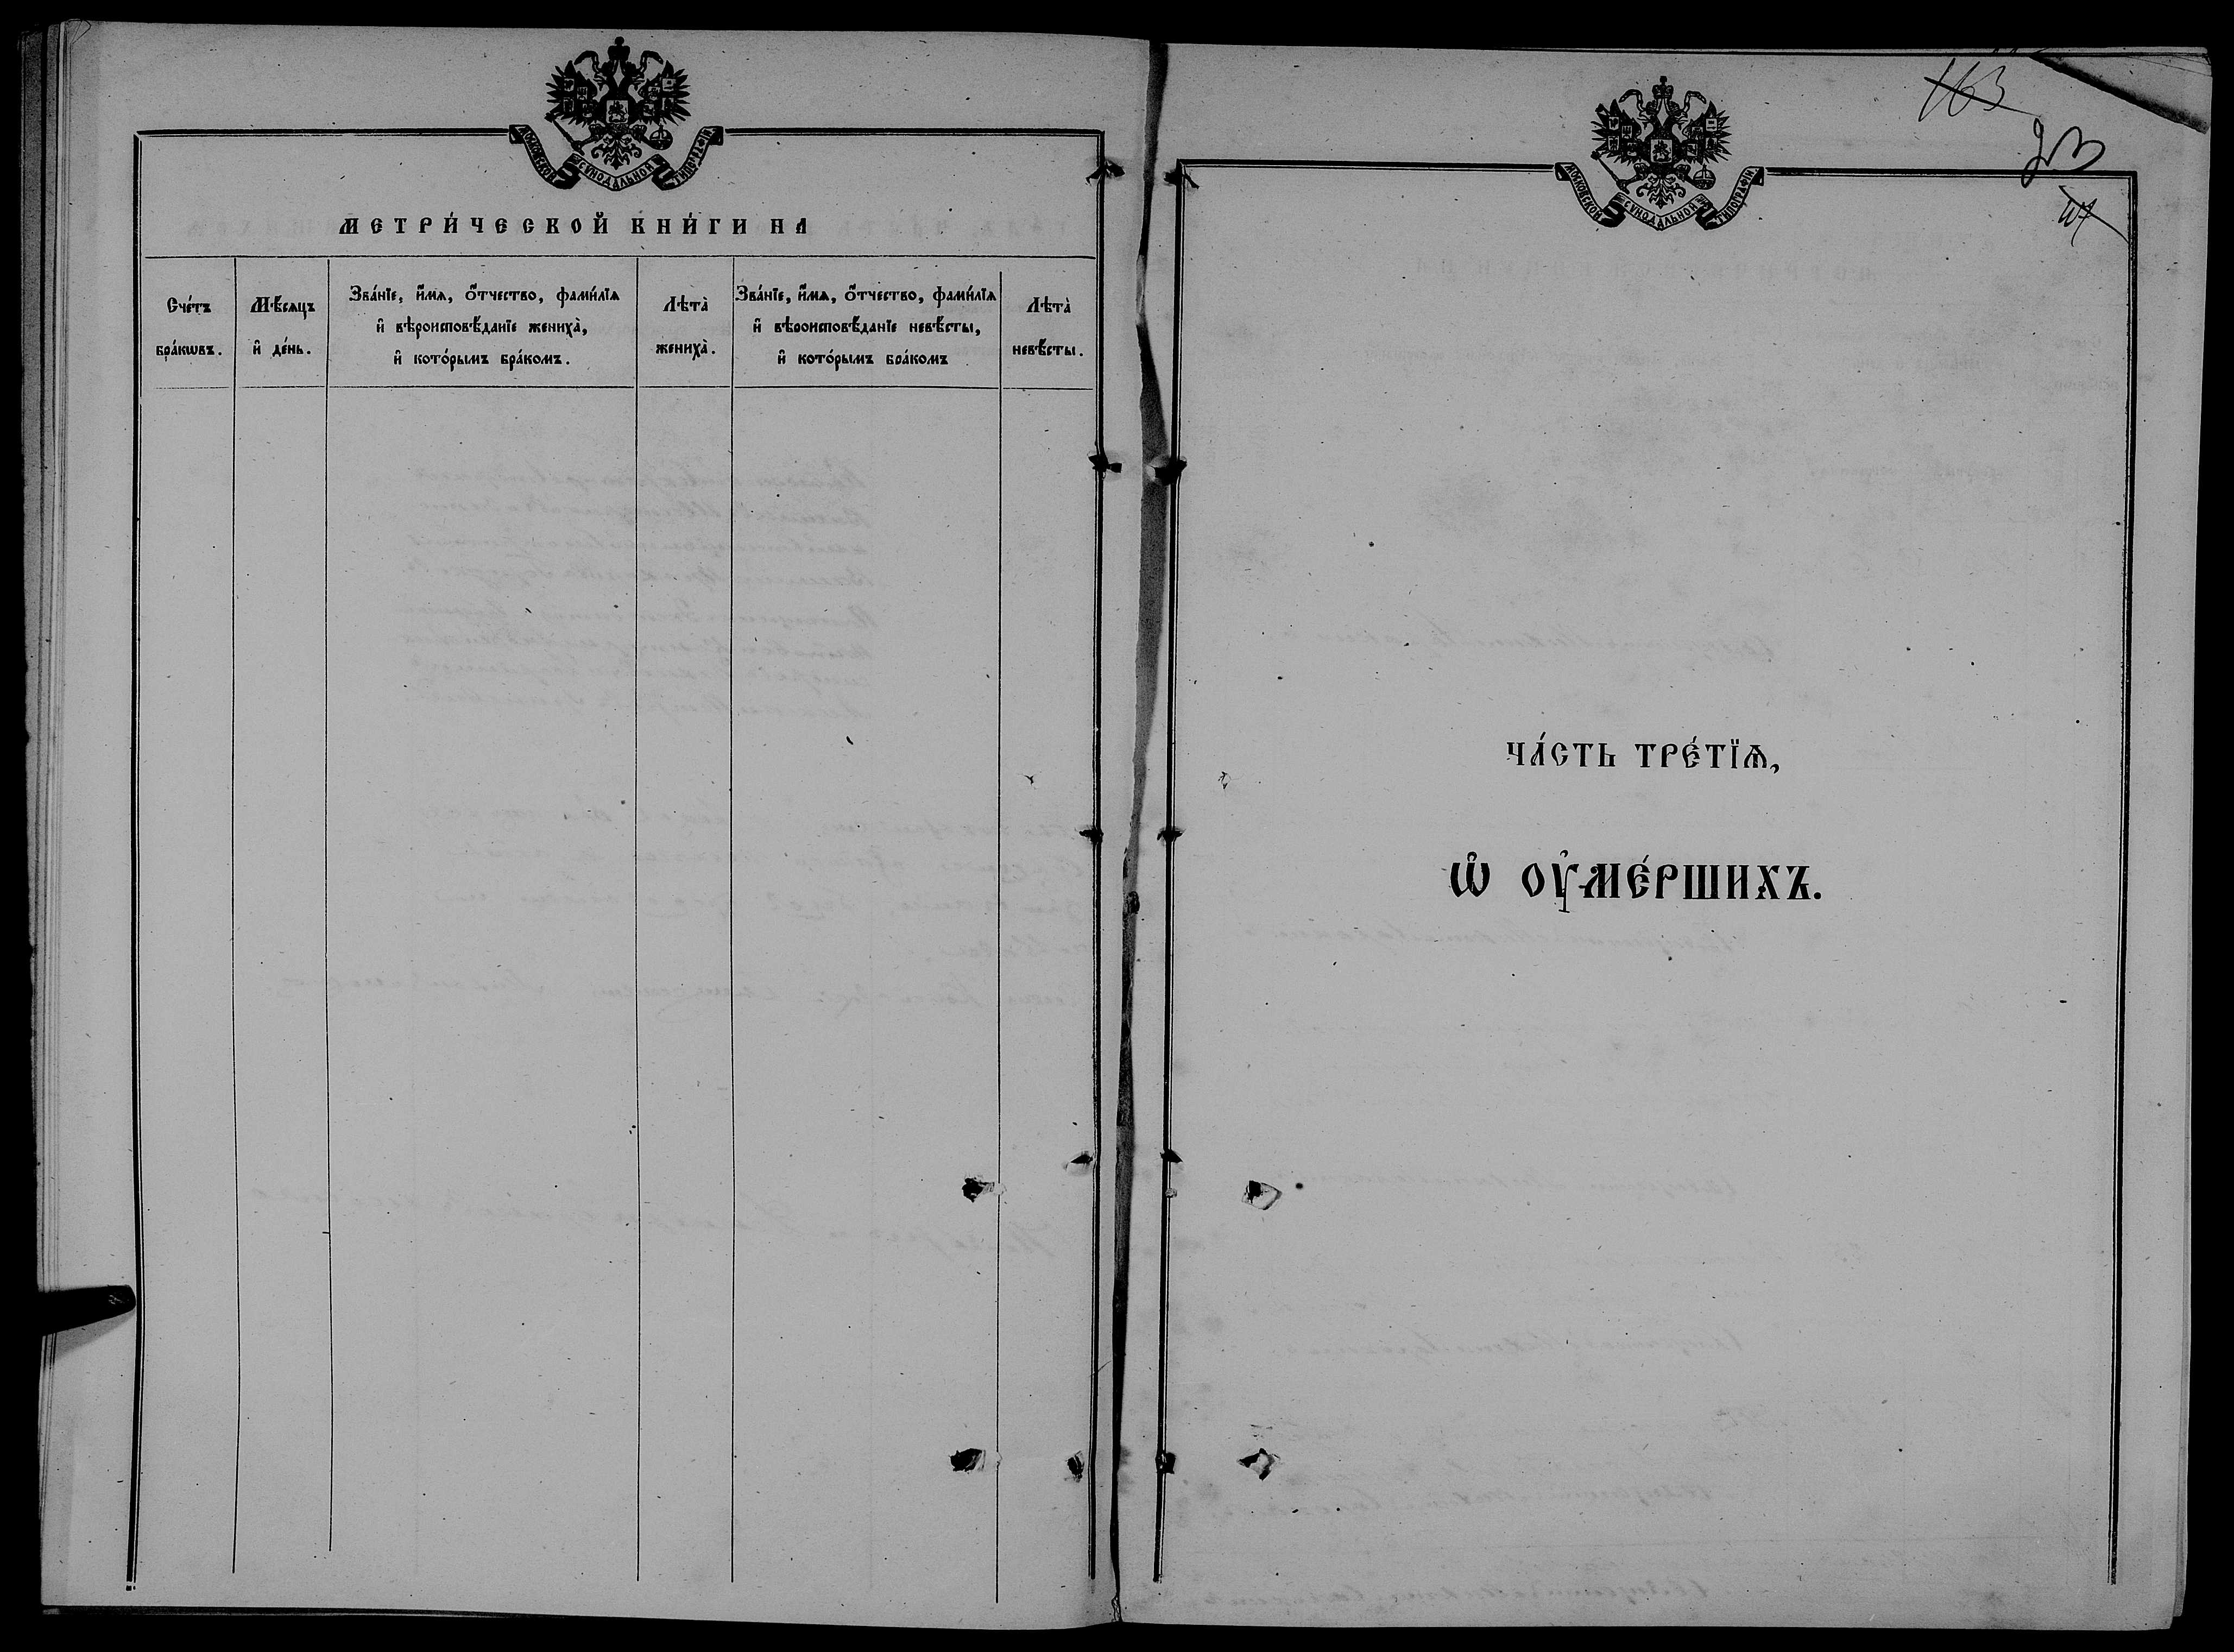 МОСКОВСКОЙ СѴНОДАЛЬНОЙ ТИПОГРАФІИ
МЕТРИ́ЧЕСКОЙ КНИ́ГИ НА
Сче́тъ
бра́кѡвъ.
Мѣ́сяцъ
и҆ де́нь.
Зва́нїе, и҆́мѧ, ѻ҆́тчество, фами́лїѧ
и҆ вѣроисповѣ́данїе жениха̀,
и҆ кото́рымъ бра́комъ.
Лѣта̀
жениха̀.
Зва́нїе, и҆́мѧ, ѻ҆́тчество, фами́лїѧ
и҆ вѣроисповѣ́данїе невѣ́сты,
и҆ кото́рымъ бра́комъ
Лѣта̀
невѣ́сты.
163
МОСКОВСКОЙ СѴНОДАЛЬНОЙ ТИПОГРАФІИ
ЧА́СТЬ ТРЕ́ТЇѦ,
Ѡ҆ ОУ҆МЕ́РШИХЪ.